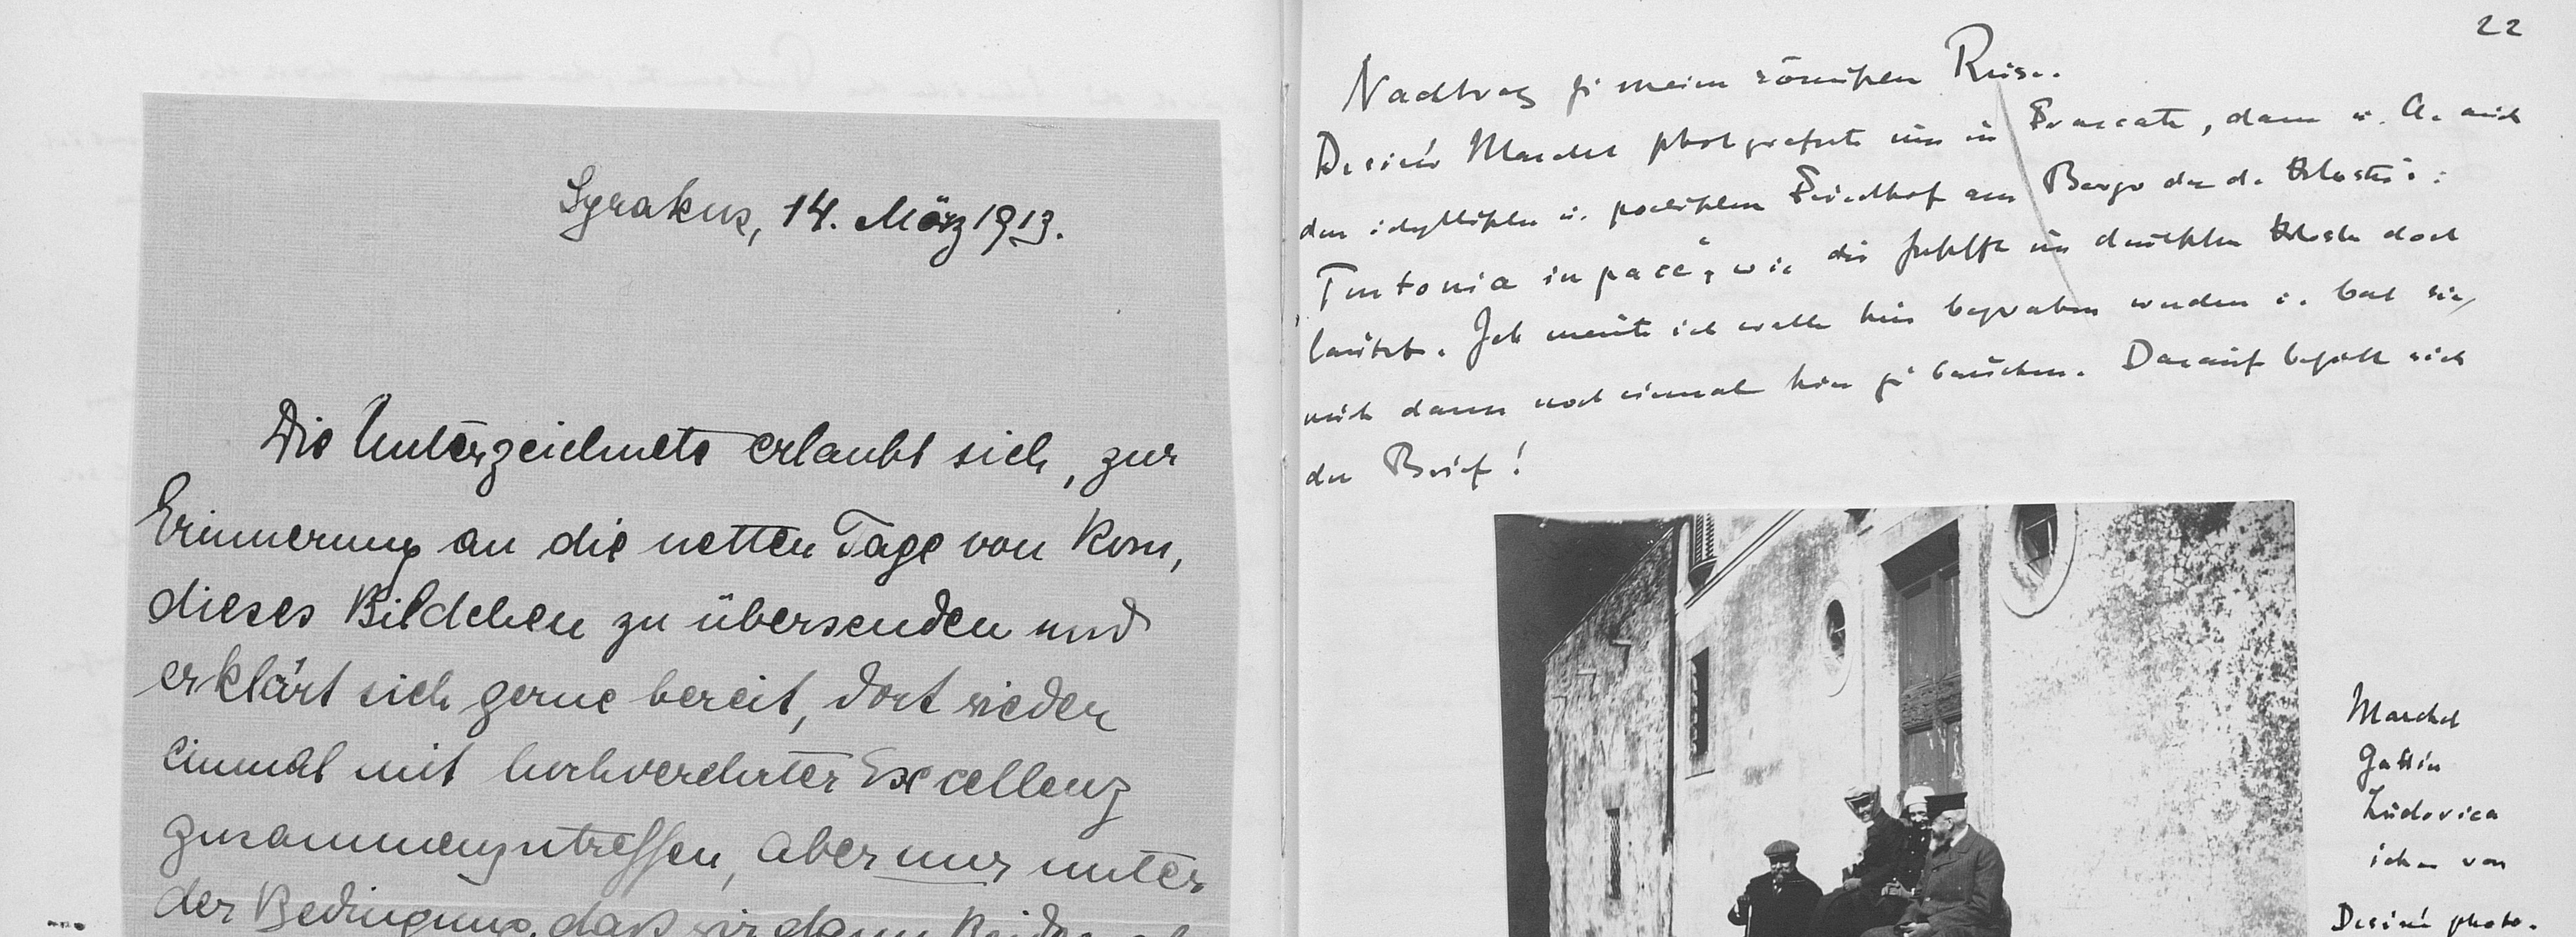 Syrakus, 14. März 1913.
Die Unterzeichnete erlaubt sich, zur
Erinnerung an die netten Tage von Rom,
dieses Bildchen zu übersenden und
erklärt sich gerne bereit, dort wieder
einmal mit hochverehrter Excellenz
zusammenzutreffen, aber nur unter
der Bedingung, daß wir dann Beide
22
Nachtrag zu meiner römischen Reise.
Desiré Maechel photografierte uns in Frascati, dann u. A. auch
den idyllischen u. poetischen Friedhof am Berge der
Teutonia in pace", wie die im deutschen dort
lautet. Ich meinte ich wolle hier begraben werden u. bat sie,
mich dann noch einmal hier zu besuchen. Darauf bezieht sich
der Brief!
Maechel
Gattin
Ludovica
ich von
Desiré photo-